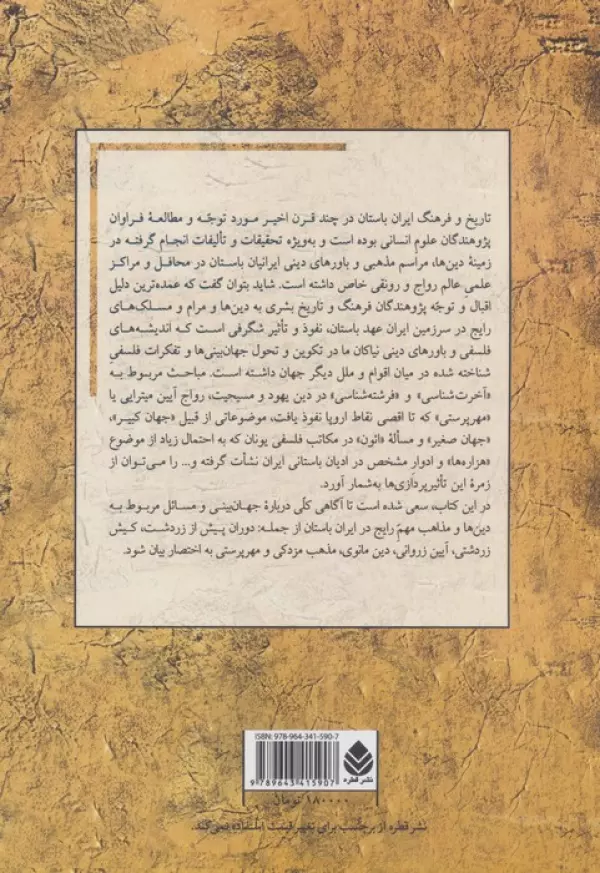 تاریخ و فرهنگ ایران باستان در چند قرن اخیر مورد توجّه و مطالعهٔ فراوان
پژوهندگان علوم انسانی بوده است و به‌ویژه تحقیقات و تألیفات انجام گرفته در
زمینهٔ دین‌ها، مراسم مذهبی و باورهای دینی ایرانیان باستان در محافل و مراکز
علمی عالم رواج و رونقی خاص داشته است. شاید بتوان گفت که عمده‌ترین دلیل
اقبال و توجّه پژوهندگان فرهنگ و تاریخ بشری به دین‌ها و مرام و مسلک‌های
رایج در سرزمین ایران عهد باستان، نفوذ و تأثیر شگرفی است که اندیشه‌های
فلسفی و باورهای دینی نیاکان ما در تکوین و تحول جهان‌بینی‌ها و تفکرات فلسفیِ
شناخته شده در میان اقوام و ملل دیگر جهان داشته است. مباحث مربوط به
«آخرت‌شناسی» و «فرشته‌شناسی» در دین یهود و مسیحیت، رواج آیین میترایی یا
«مهرپرستی» که تا اقصی نقاط اروپا نفوذ یافت، موضوعاتی از قبیل «جهان کبیر»،
«جهان صغیر» و مسألهٔ «ائون» در مکاتب فلسفی یونان که به احتمال زیاد از موضوع
«هزاره‌ها» و ادوار مشخص در ادیان باستانی ایران نشأت گرفته و... را می‌توان از
زمرهٔ این تأثیرپردازی‌ها به‌شمار آورد.
در این کتاب، سعی شده است تا آگاهی کلّی دربارهٔ جهان‌بینی و مسائل مربوط به
دین‌ها و مذاهب مهمّ رایج در ایران باستان از جمله: دوران پیش از زردشت، کیش
زردشتی، آیین زروانی، دین مانوی، مذهب مزدکی و مهرپرستی به اختصار بیان شود.
ISBN: 978-964-341-590-7
9 789643 415907
نشر قطره
۱۸۰۰۰۰ تومان
نشر قطره از برچسب برای تغییر قیمت استفاده نمی‌کند.